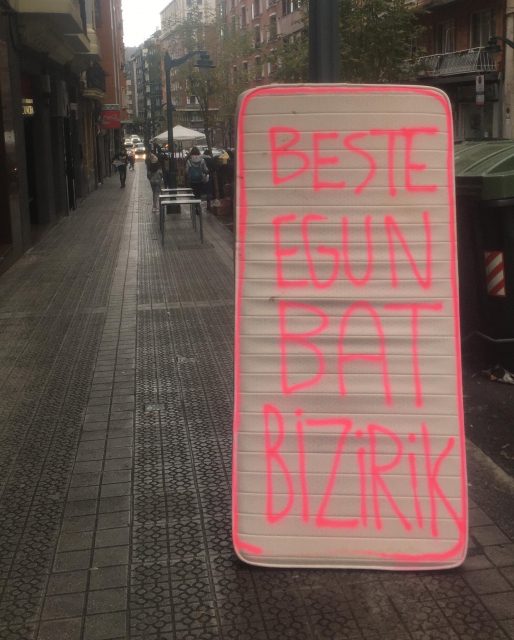 BESTE
EGUN
BAT
BiZiRiK